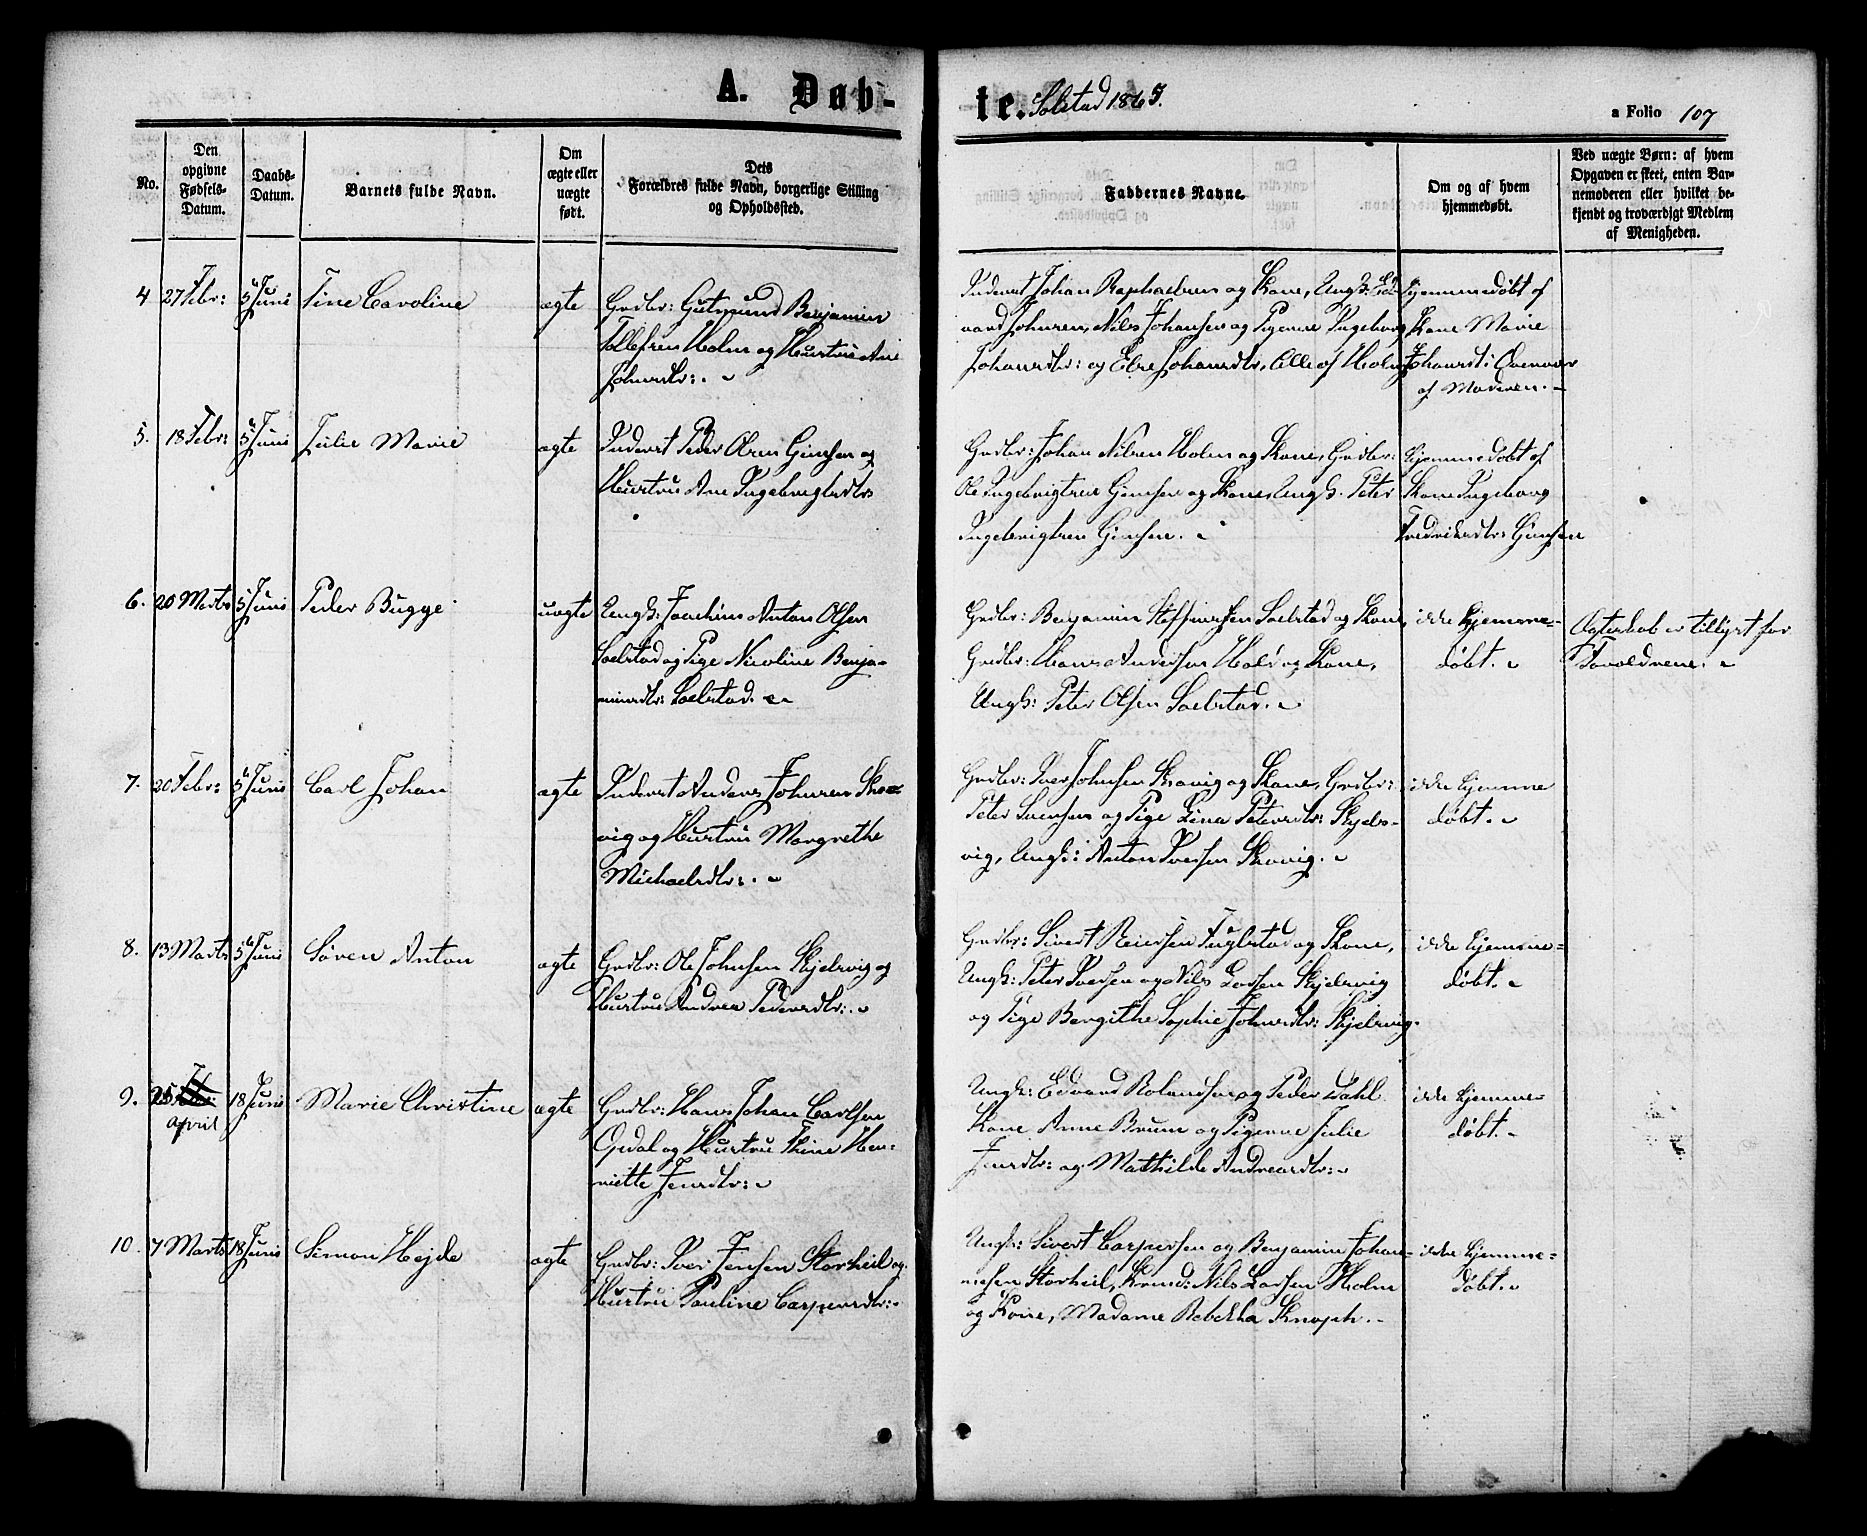 A. Døb-
te. Solstad 1865.
a Folio 107
No.
Den opgivne Fødsels-Datum.
Daabs-Datum.
Barnets fulde Navn.
Om ægte eller uægte født.
Dets Forældres fulde Navn, borgerlige Stilling og Opholdssted.
Faddernes Navne.
Om og af hvem hjemmedøbt.
Ved uægte Børn: af hvem Opgaven er skeet, enten Barnemoderen eller hvilket bekjendt og troværdigt Medlem af Menigheden.
4 27 Febr: 5 Juni Tine Caroline ægte
Grdbr: Gutmund Benjamin
Tollefsen Holm og Hustru Ane
Johnsdtr:
Inderst Johan Raphaelsen og Kone, Ungk: Ed-
vard Johnsen, Nils Johansen og Pigerne Ingeborg
Johansdtr: og Else Johansdtr, Alle af Holm
Hjemmedøbt af
Kone Marie
Johansdt:
af Moderen.
5. 18 Febr: 5 Juni Julie Marie ægte
Inderst Peder Olsen Gimsen og
Hustru Ane Ingebrigtsdtr
Grdbr: Johan Nilsen Holm og Kone, Grdbr:
Ole Ingebrigtsen Gimsen og Kone, Ungk. Peter
Ingebrigtsen Gimsen.
hjemmedøbt af
Kone Ingeborg
Fredriksdtr: Gimsen
6. 20 Marts 5 Juni Peder Bugge uægte
Ungk: Joachim Anton Olsen
Soelstad og Pige Nicoline Benja-
minsdtr: Soelstad.
Grdbr: Benjamin Steffensen Soelstad og Kone,
Grdbr: Hans Andersen Hold og Kone,
Ungk: Peter Olsen Soelstad.
ikke hjemme-
døbt.
Ægteskab er tillyst for
Forældrene.
7. 20 Febr: 5 Juni Carl Johan ægte
Inderst Anders Johnsen Skra-
vig og Hustru Margrethe
Michaelsdtr:.
Grdbr: Iver Johnsen Skravig og Kone, Grdbr:
Peter Svensen og Pige Lina Petersdtr: Skjels-
vig, Ungk: Anton Iversen Skravig.
ikke hjemme
døbt.
8. 13 Marts 5 Juni Søren Anton ægte
Grdbr: Ole Johnsen Skjelsvig og
Hustru Andrea Pedersdtr:.
Grdbr: Sivert Reiersen Fuglstad og Kone,
Ungk: Peter Iversen og Nils Larsen Skjelsvig
og Pige Bergithe Sophie Johnsdtr: Skjelsvig.
ikke hjemme-
døbt.
9. 25 April 18 Juni Marie Christine ægte
Grdbr: Hans Johan Carlsen
Opdal og Hustru Thine Hen-
riette Jensdtr:
Ungk: Edvard Rolandsen og Peder Dahl
Kone Anne Bruun og Pigerne Julie
Jensdtr: og Mathilde Andreasdtr:
ikke hjemme-
døbt.
10. 7 Marts 18 Juni Simon Hejde ægte
Grdbr: Iver Jensen Storheil og
Hustru Pauline Caspersdtr:
Ungk: Sivert Caspersen og Benjamin Johan-
nesen Storheil, Kmd: Nils Larsen Holm
og Kone, Madame Rebekka Knoph.
ikke hjemme-
døbt.